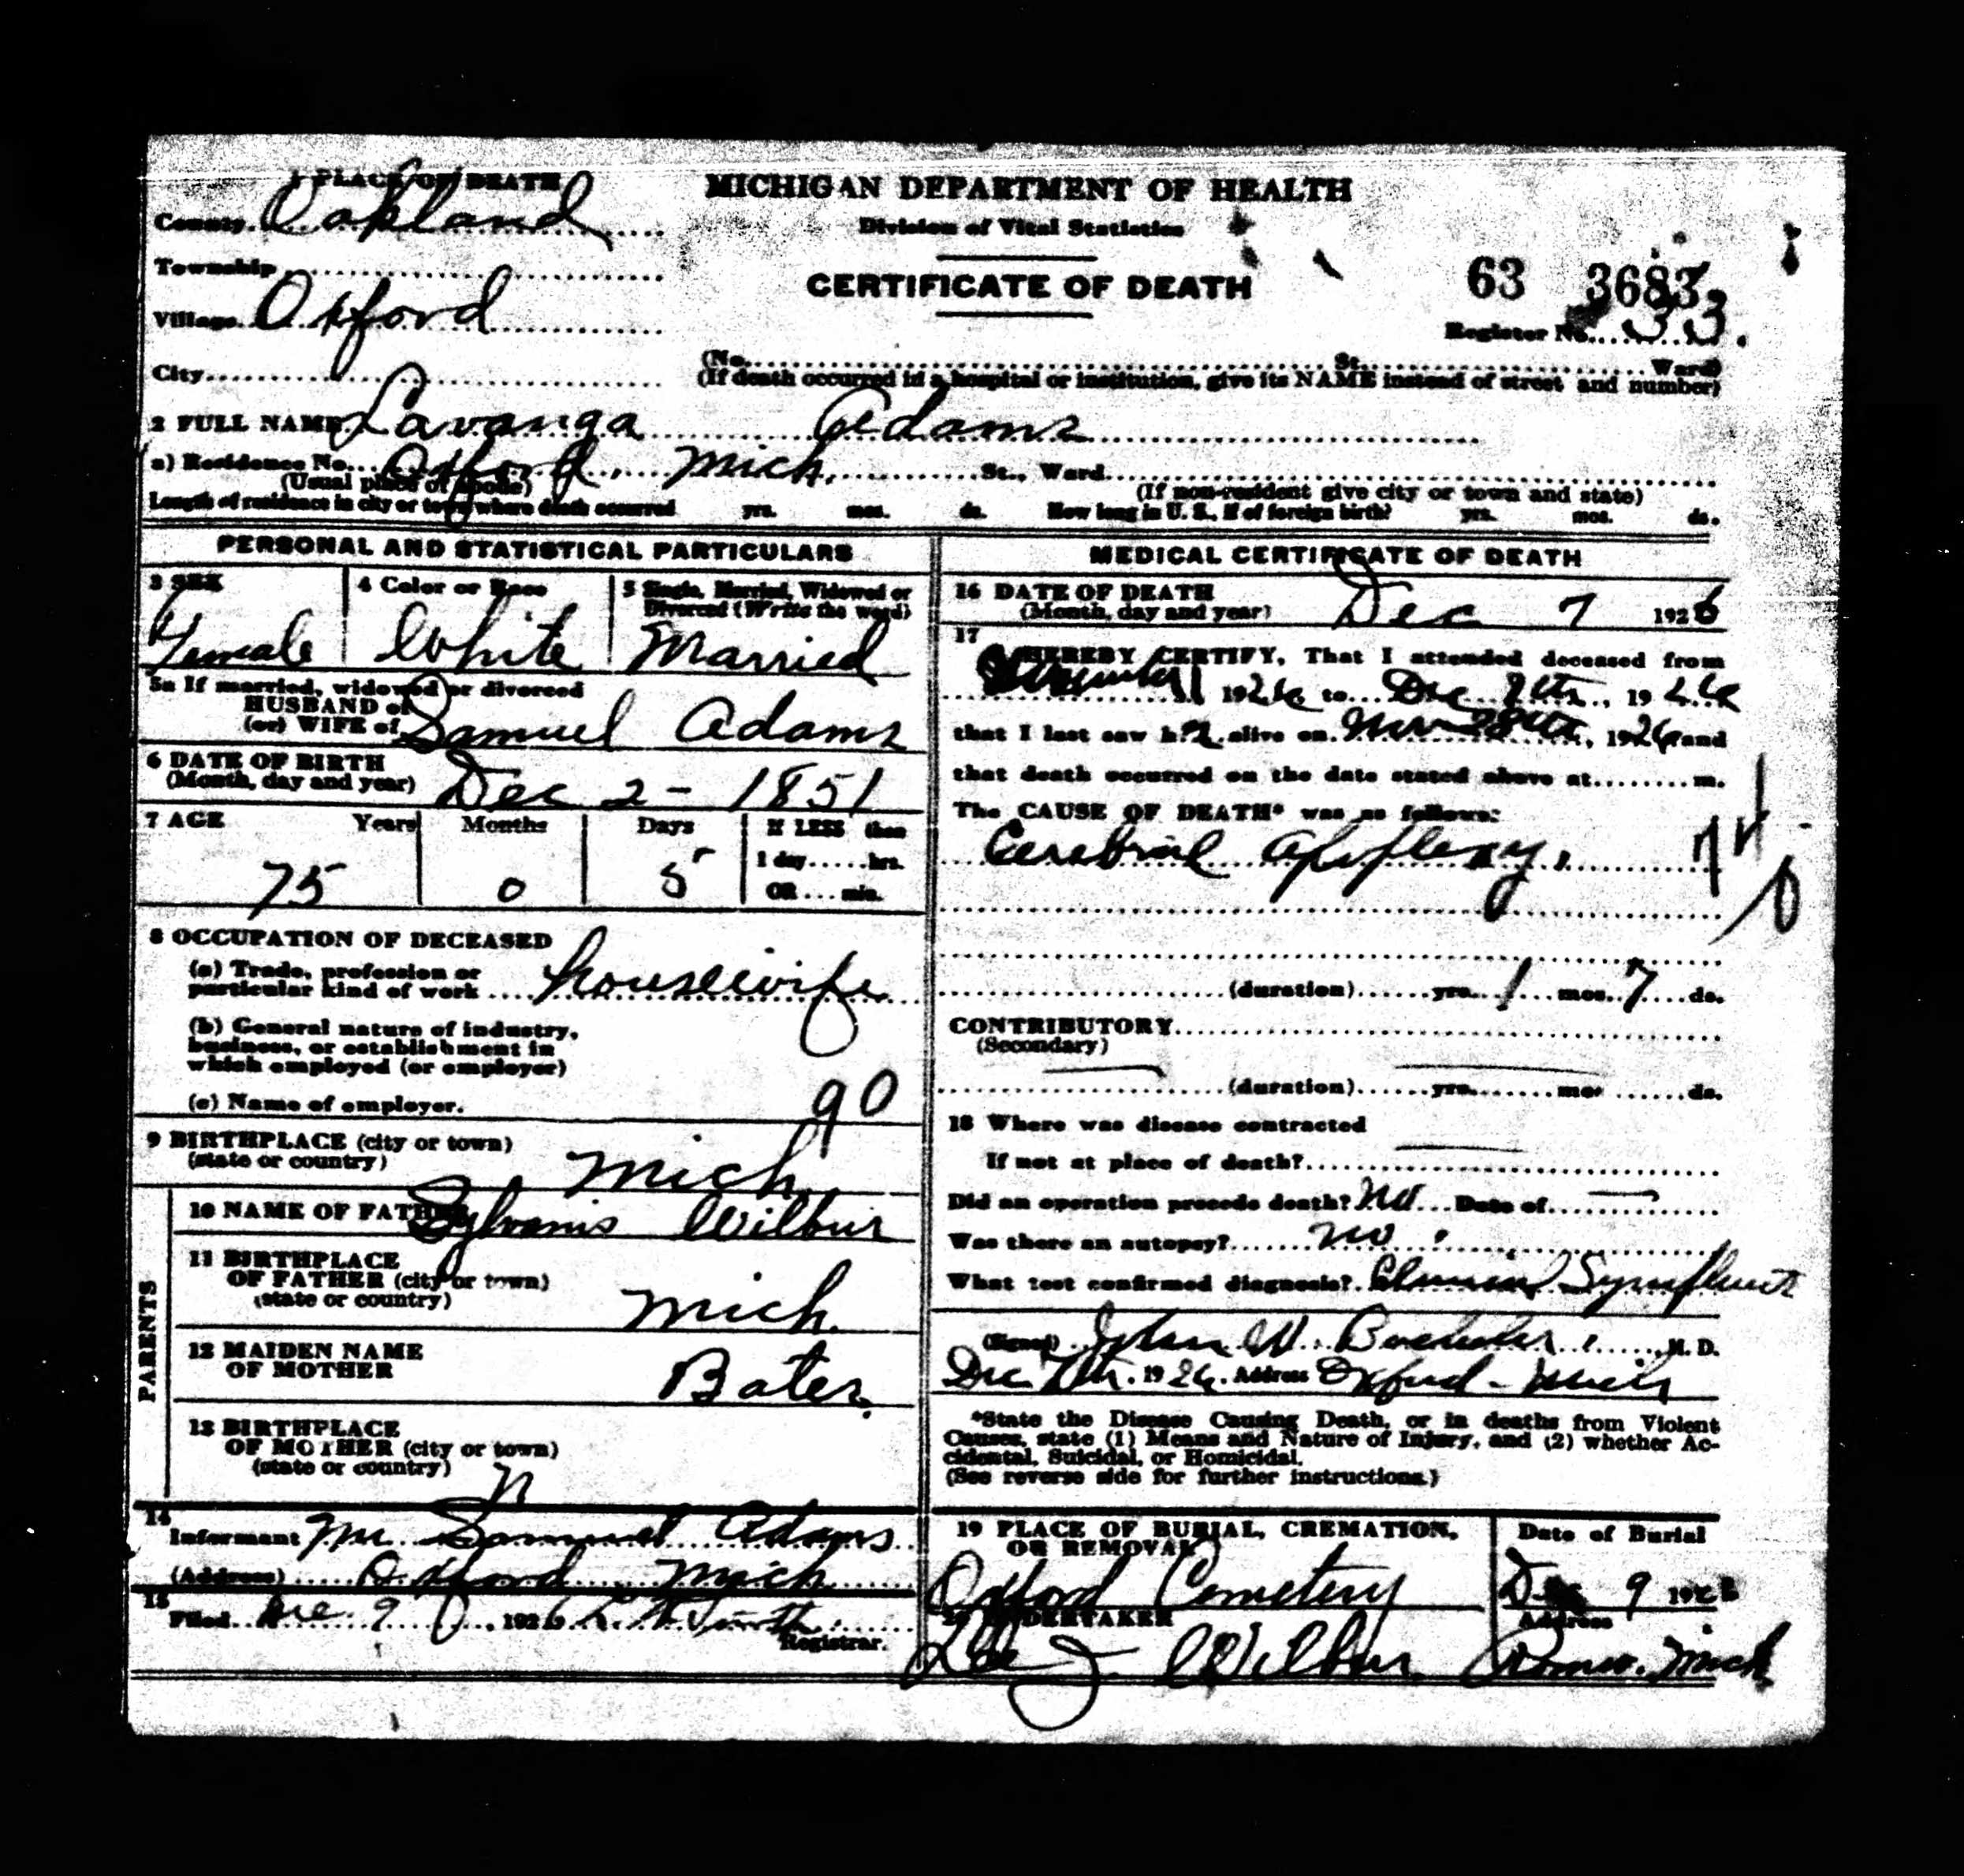 1 PLACE OF DEATH
County Oakland
Township
Village Oxford
City
MICHIGAN DEPARTMENT OF HEALTH
Division of Vital Statistics
CERTIFICATE OF DEATH
63 3683
Register No. 33.
(No. St. Ward)
(If death occurred in a hospital or institution, give its NAME instead of street and number)
2 FULL NAME Lavanga Adams
(a) Residence No. Oxford, Mich. St., Ward
(Usual place of abode) (If non-resident give city or town and state)
Length of residence in city or town where death occurred yrs. mos. ds. How long in U. S., if of foreign birth? yrs. mos. ds.
PERSONAL AND STATISTICAL PARTICULARS
3 SEX
Female
4 Color or Race
White
5 Single, Married, Widowed or
Divorced (Write the word)
Married
5a If married, widowed or divorced
HUSBAND of
(or) WIFE of Samuel Adams
6 DATE OF BIRTH
(Month, day and year) Dec 2 - 1851
7 AGE Years Months Days If LESS than
1 day......hrs.
75 0 5 OR....min.
8 OCCUPATION OF DECEASED
(a) Trade, profession or
particular kind of work housewife
(b) General nature of industry,
business, or establishment in
which employed (or employer)
(c) Name of employer. 90
9 BIRTHPLACE (city or town)
(state or country) Mich
PARENTS
10 NAME OF FATHER Sylvanis Wilbur
11 BIRTHPLACE
OF FATHER (city or town)
(state or country) Mich.
12 MAIDEN NAME
OF MOTHER Bates.
13 BIRTHPLACE
OF MOTHER (city or town)
(state or country)
14
Informant Mr. Samuel Adams
(Address) Oxford Mich
15
Filed Dec. 9, 1926 Smith
Registrar.
MEDICAL CERTIFICATE OF DEATH
16 DATE OF DEATH
(Month, day and year) Dec 7 1926
17
I HEREBY CERTIFY, That I attended deceased from
1926 to Dec 7th, 1926
that I last saw h alive on Nov 28th, 1926 and
that death occurred on the date stated above at m.
The CAUSE OF DEATH* was as follows:
Cerebral Apoplexy. 74
(duration) yrs. 1 mos. 7 ds.
CONTRIBUTORY
(Secondary)
(duration) yrs. mos ds.
18 Where was disease contracted
If not at place of death?
Did an operation precede death? No Date of
Was there an autopsy? No
What test confirmed diagnosis? Clinical Symptoms
(Signed) John W. M. D.
Dec 7th. 1926. Address Oxford - Mich
*State the Disease Causing Death, or in deaths from Violent
Causes, state (1) Means and Nature of Injury, and (2) whether Ac-
cidental, Suicidal, or Homicidal.
(See reverse side for further instructions.)
19 PLACE OF BURIAL, CREMATION,
OR REMOVAL
Oxford Cemetery
Date of Burial
Dec 9 192
20 UNDERTAKER
Lee J. Wilbur
Address
Romeo. Mich